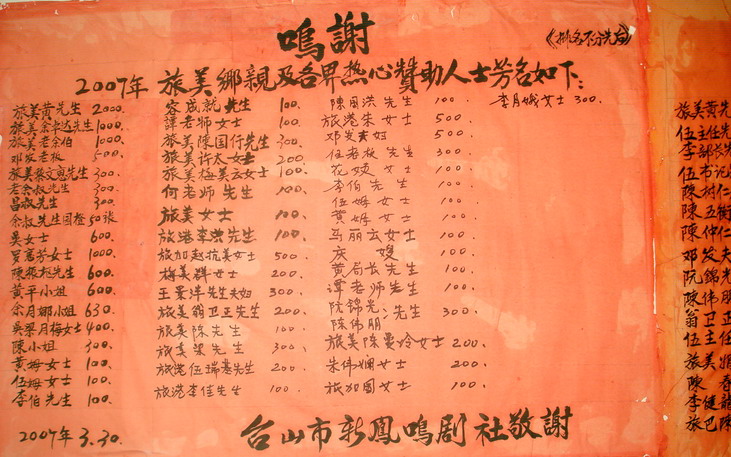 鳴謝
《排名不分先后》
2007年 旅美鄉親及各界热心贊助人士芳名如下:
旅美黄先生 2000.
旅美余卓达先生 1000.
旅美老余伯 1000.
邓发老板 500.
旅美張文惠先生 300.
老余叔先生 300.
昌叔先生 300.
余叔先生目橙 50张
吳女士 600.
罗惠芳女士 1000.
陳振想先生 600.
黄平小姐 600.
余月娜小姐 630.
吳翠月梅女士 400.
陳小姐 300.
黄姆女士 100.
伍姆女士 100.
李伯先生 100.
容成就先生 100.
譚老師女士 100.
旅美陳国行先生 300.
旅美许太女士 200.
旅美梅美云女士 100.
何老师先生 100.
旅美女士 100.
旅港李洪先生 100.
旅加赵抗美女士 500.
梅美群女士 200.
王景洋先生夫妇 300.
旅美翁卫正先生 200.
旅美陈先生 100.
旅美梁先生 300.
旅港伍瑞意先生 200.
旅港李佳先生 100.
陳周洪先生 100.
旅港朱女士 500.
邓发夫妇 500.
伍老板先生 300.
花嫂女士 100.
李伯先生 100.
伍姆女士 100.
黄姆女士 100.
马丽云女士 100.
庆嫂 100.
黄局长先生 100.
谭老师先生 100.
阮錦光:先生 300.
陈伟朋
旅美陈曼玲女士 200.
朱伟娴女士 200.
旅加國女士 100.
李月娥女士 300.
旅美黄先
伍主任先
李部長先
伍市记
陳村仁
陳五衡
陳仲仁
邓发夫
阮錦光
陳伟朋
翁卫正
伍主任
旅美娟
陳春
李健龍
旅巴陳
2007年3.30.
台山市新鳳鳴剧社敬謝